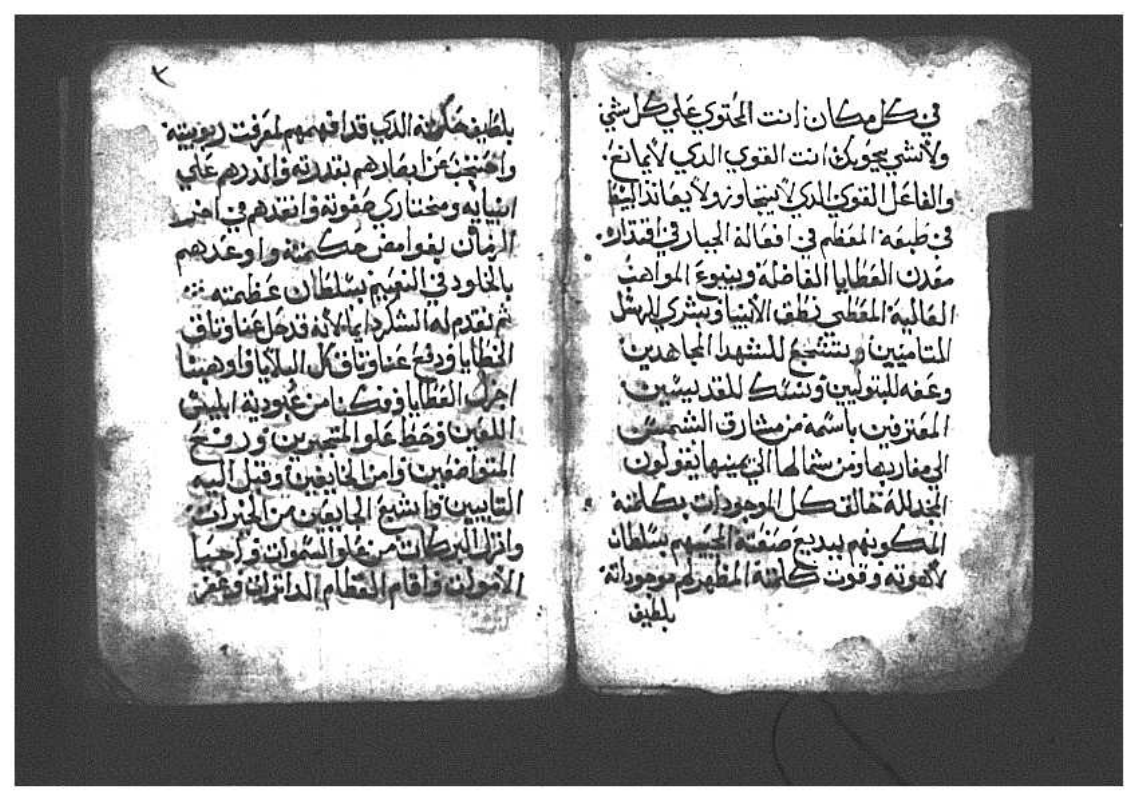 في كل مكان انت المحتوي علي كل شي
ولا شي يحويك انت القوي الدي لا يمانع
والفاعل القوي الدي لا يتجاوز ولا يعاند
في المعظم في افعاله الجبار في اقتداره
معدن العطايا الفاضله وينبوع المواهب
العاليه المعطي نطق الأنبيا وبشري الرسل
وتشجع للشهدا المجاهدين
وعفه للبتوليين ونسك للقديسين
المعترفين باسمه من مشارق الشمس
الي مغاربها ومن شمالها الي يمينها يقولون
المجد لله خالق كل الموجودات بكلمته
المكونهم ببديع صنعته المحييهم بسلطان
لاهوته وقوت كلمته المظهر لهم موجوداته
بلطيف
٢
بلطيف حكمته الدي قد افهمهم لمعرفت ربوبيته
واحتجب عن ابصارهم بقدرته واندرهم علي
انبيايه ومختاري صفوته وانقدهم في اخر
الزمان بغوامض حكمته واوعدهم
بالخلود في النعيم بسلطان عظمته
ثم نقدم له الشكر دايما لأنه قد حل عنا وتاق
الخطايا ورفع عنا وتاق كل البلايا واوهبنا
اجزل العطايا وفكنا من عبودية ابليس
اللعين وحط علو المتجبرين ورفع
المتواضعين وامن الخايفين وقبل اليه
التايبين واشبع الجايعين من الخيرات
وانزل البركات من علو السموات واحيا
الأموات واقام العظام الداثرات وغفر